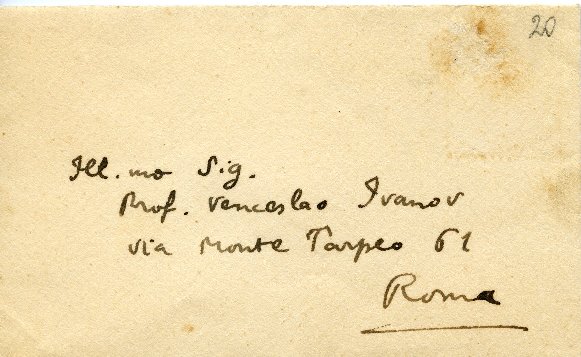 20
Ill.mo Sig.
Prof. Venceslao Ivanov
via Monte Tarpeo 61
Roma